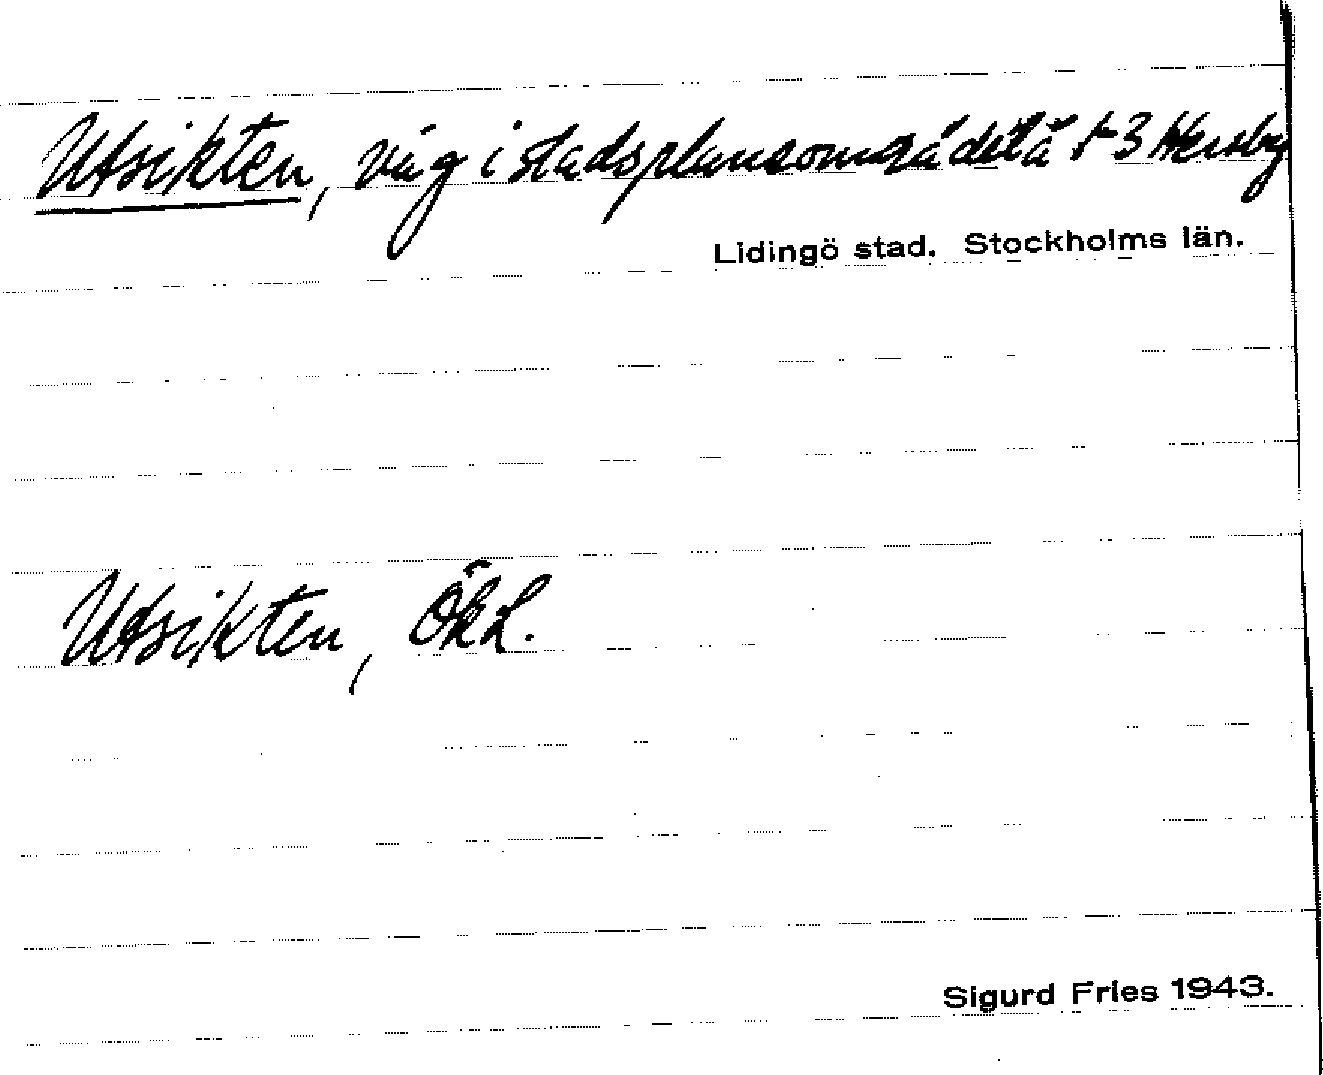 Utsikten, väg i stadsplaneområdet å t 3 Hersby
Lidingö stad. Stockholms län.
Utsikten, ÖkL.
Sigurd Fries 1943.